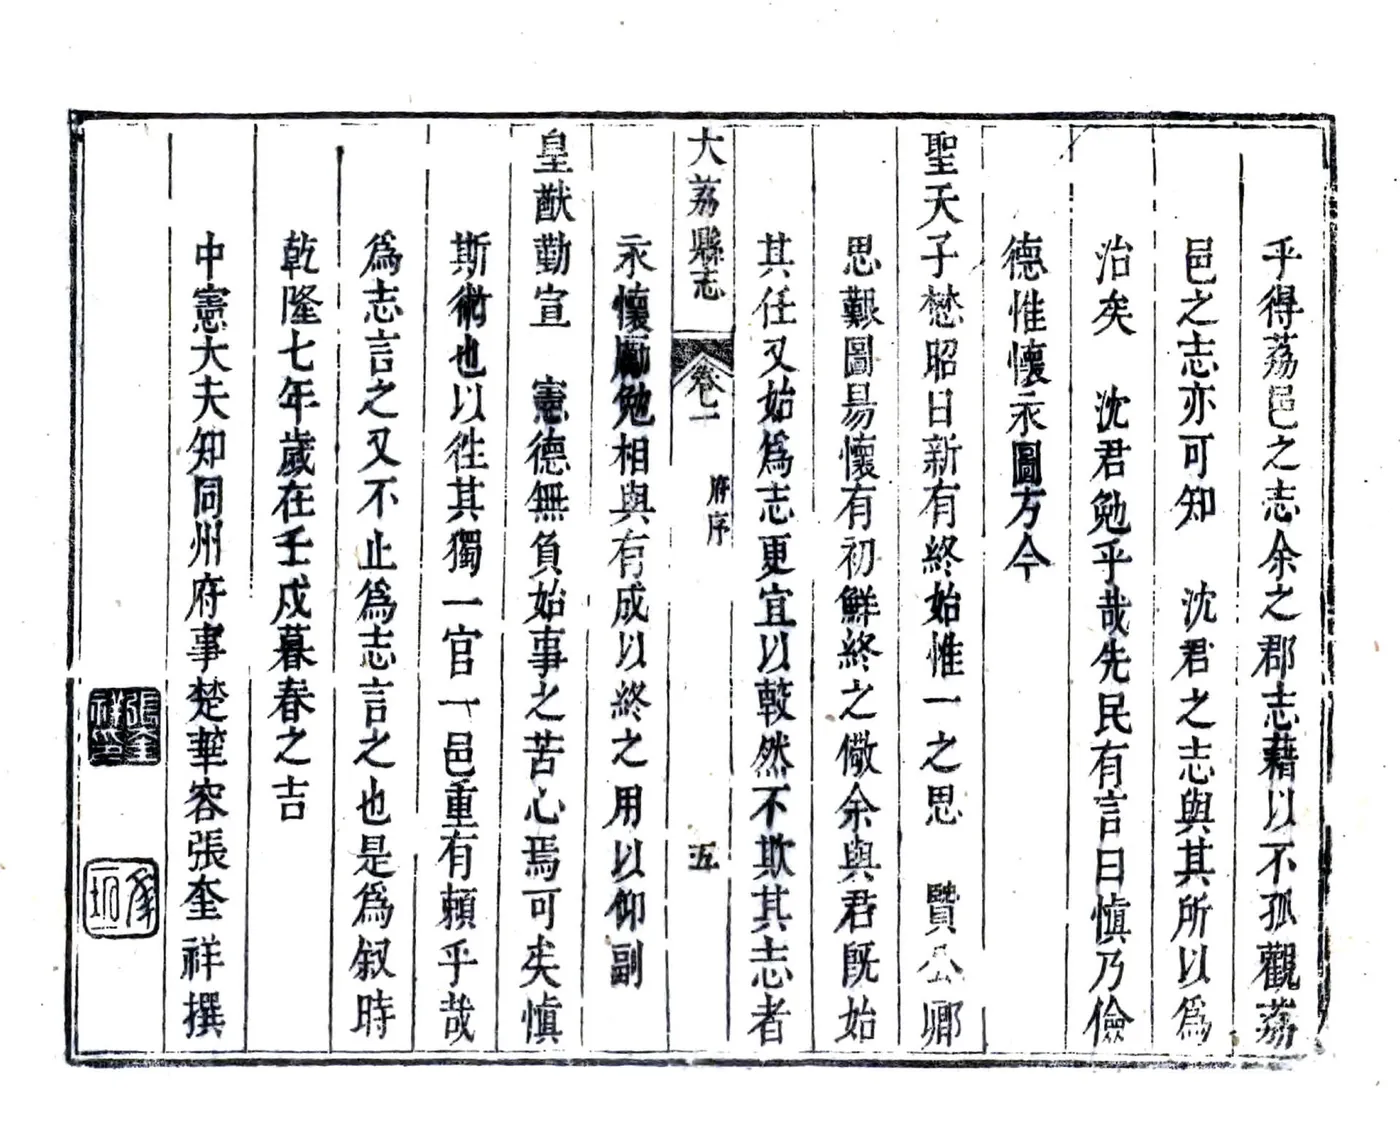 乎得荔邑之志余之郡志藉以不孤觀荔
邑之志亦可知　沈君之志與其所以爲
治矣　沈君勉乎哉先民有言曰慎乃儉
德惟懷永圖方今
聖天子懋昭日新有終始惟一之思　賢公卿
思艱圖昜懷有初鮮終之儆余與君旣始
其任又始爲志更宜以毅然不欺其志者
大荔縣志　卷一　府序　五
永懷勵勉相與有成以終之用以仰副
皇猷勤宣　憲德無負始事之苦心焉可矣慎
斯術也以徃其獨一官一邑重有賴乎哉
爲志言之又不止爲志言之也是爲叙時
乾隆七年歲在壬戌暮春之吉
中憲大夫知同州府事楚華容張奎祥撰
張奎祥印